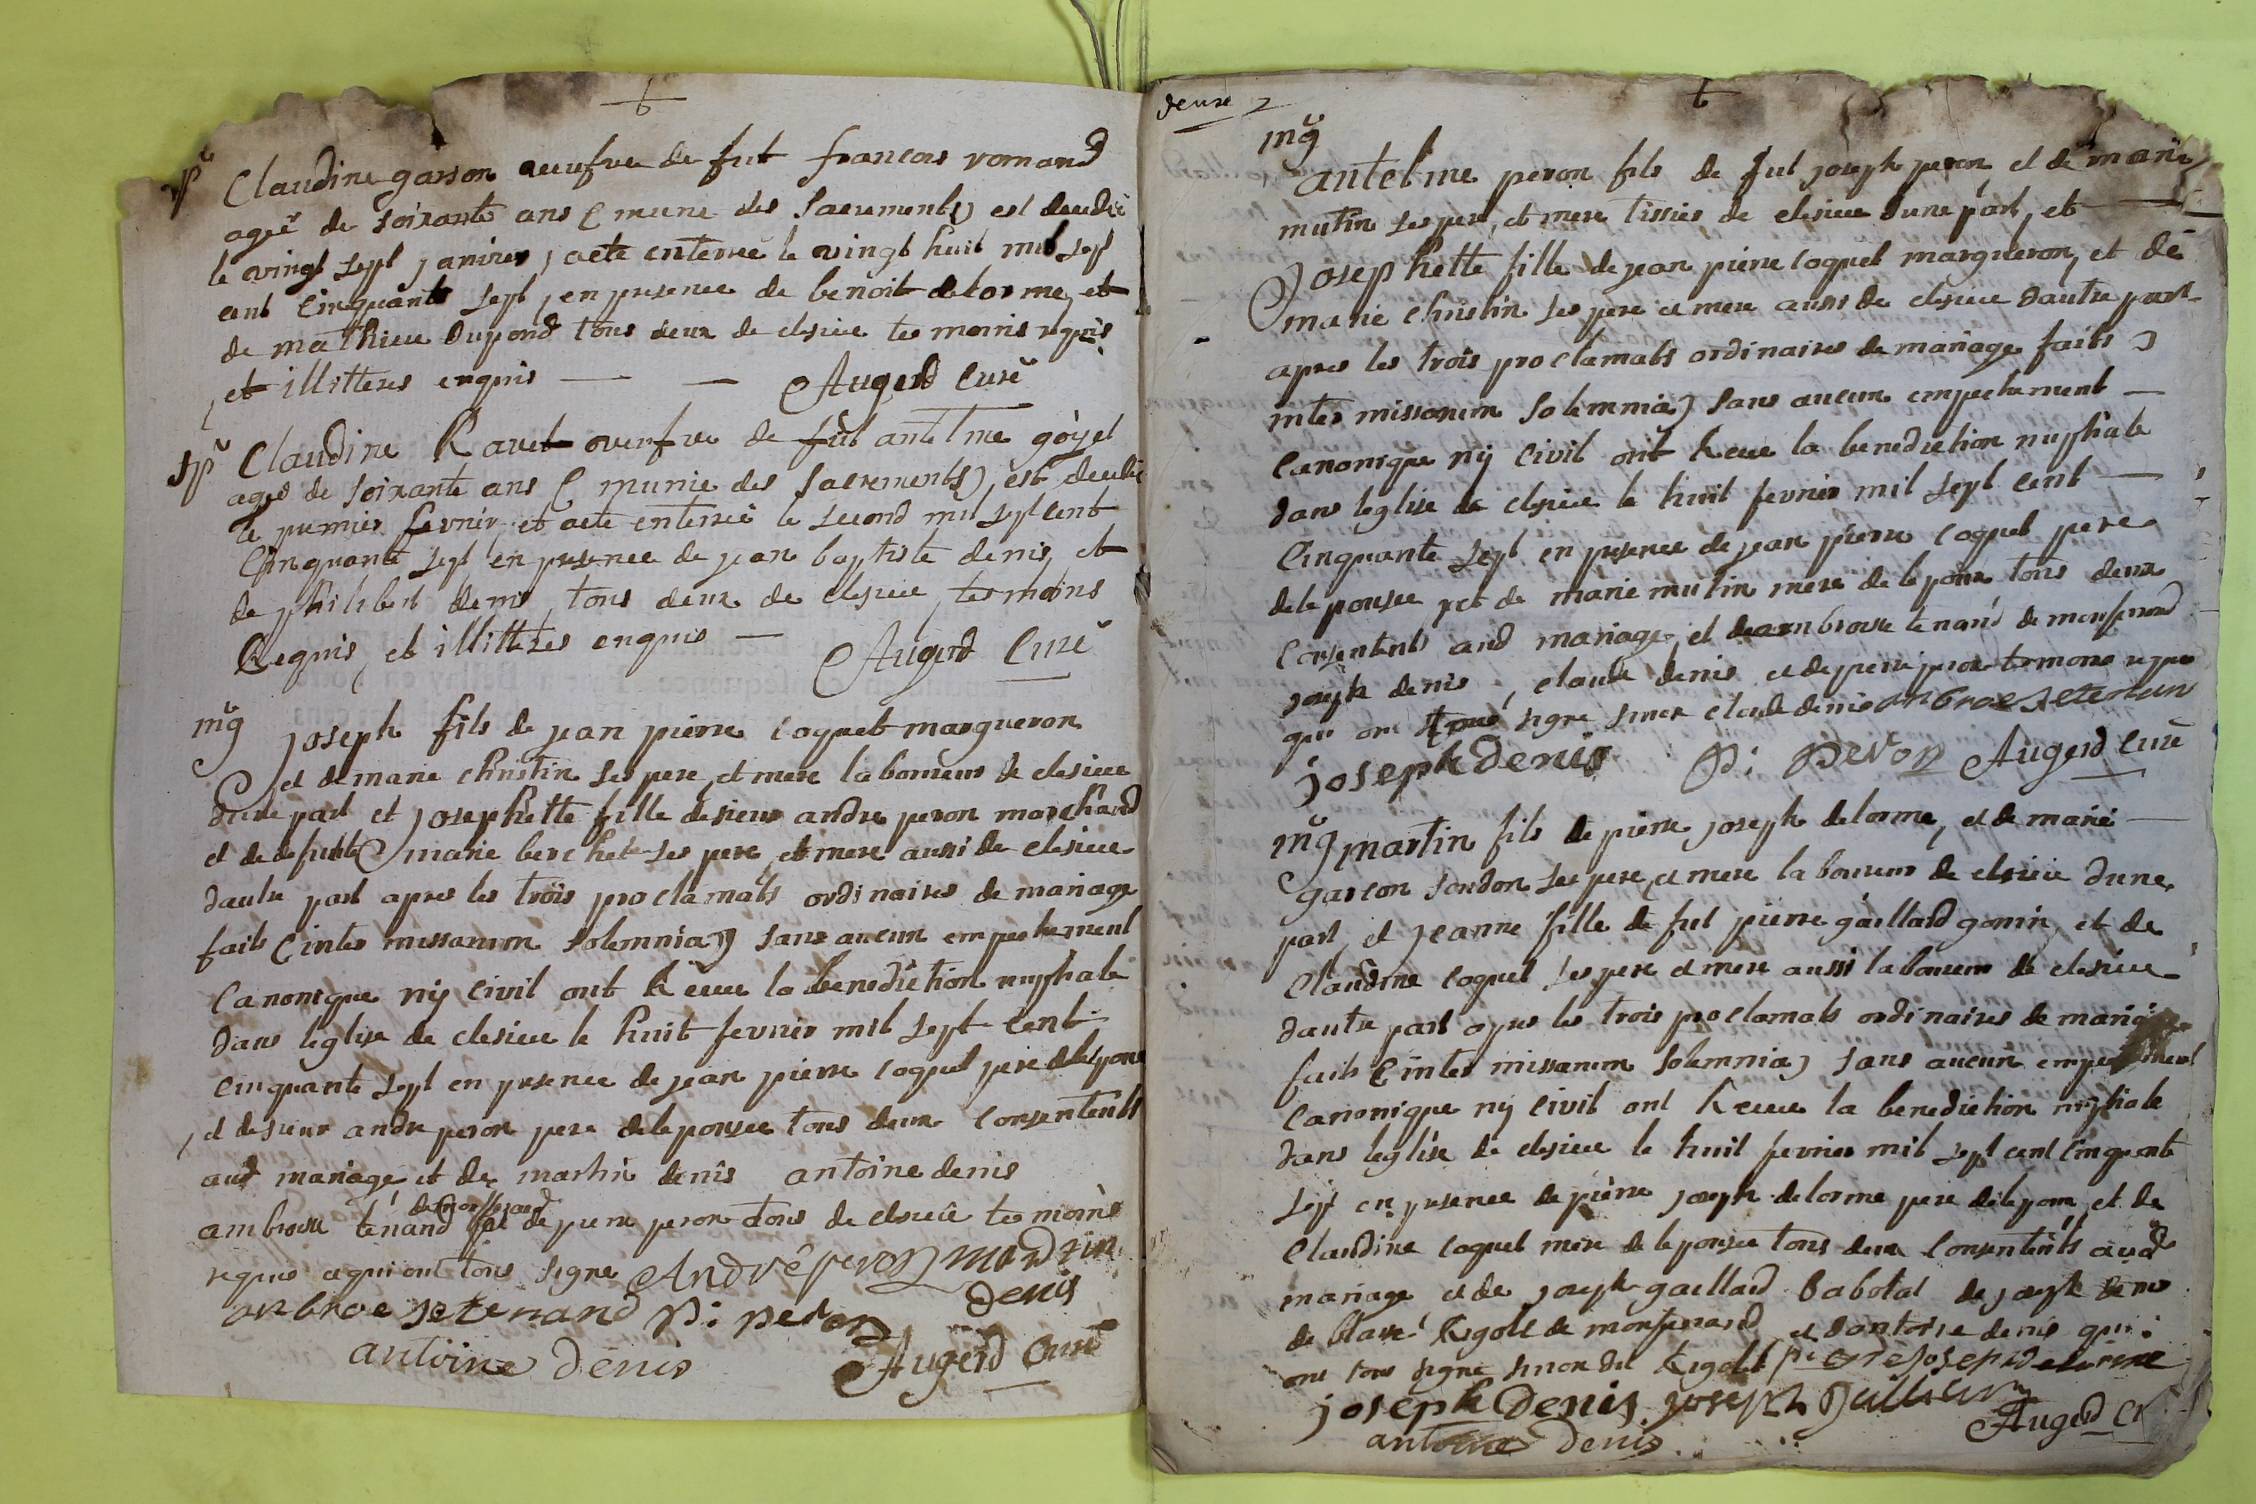 Claudine garson veufve de fut francois romand
ageé de soixante ans (munie des sacrements) est decedée
le vingt sept janvier, et a ete enterreé le vingt huit mil sept
cent cinquante sept, en presence de benoit delorme, et
de mathieu dupond tous deux de clesieu temoins requis
et illitteres enquis — — Augerd Curé
Sp^re Claudine Ravet veufve de fut antelme goÿet
ageé de soixante ans (munie des sacrements), est decedée
le premier fevrier, et a ete enterreé le second mil sept cent
Cinquante sept en presence de jean baptiste denis, et
de philibert denis, tous deux de clesieu, temoins
Requis, et illitteres enquis — Augerd Curé
m^g joseph fils de jean pierre coquet margueron
et de marie christin ses pere, et mere laboureurs de clesieu
d'une part et josephette fille de sieur andre peron marchand
et de defunte marie berchet ses pere, et mere aussi de clesieu
dautre part apres les trois proclamats ordinaires de mariage
faits (inter missarum solemnia) sans aucun empechement
Canonique nÿ civil ont Receu la benediction nuptiale
dans leglise de clesieu le huit fevrier mil sept cent
cinquante sept en presence de jean pierre coquet pere de lepoux
, et de sieur andre peron pere de lepousee tous deux consentents
aud mariage et de martin denis antoine denis
ambroise tenand de monferrand et de pierre peron tous de clesieu temoins
requis et qui ont tous signe André peron martin
denis
anbroese tenand Pi peron
antoine denis Augerd Curé
deuxe 2
m^g
antelme peron fils de fut joseph peron et de marie
mutin ses pere, et mere tissier de clesieu dune part, et —
Josephette fille de jean pierre coquet margueron, et de
marie christin ses pere et mere aussi de clesieu dautre part
apres les trois proclamats ordinaires de mariage faits (
inter missarum solemnia) sans aucun empechement —
Canonique nÿ civil ont Receu la benediction nuptiale
dans leglise de clesieu le huit fevrier mil sept cent —
Cinquante sept en presence de jean pierre coquet pere
de lepousee, et de marie mutin mere de lepoux tous deux
consentents aud mariage, et de ambroise tenand de monferrand
joseph denis, claude denis et de pierre peron temoins requis
qui ont tous signe sinon claude denis anbroese tenan
joseph denis Pi peron Augerd Curé
m^g martin fils de pierre joseph delorme, et de marie —
garcon sondon ses pere, et mere laboureurs de clesieu dune
part, et jeanne fille de fut pierre gaillard gonin, et de
Claudine coquet ses pere et mere aussi laboureurs de clesieu
dautre part apres les trois proclamats ordinaires de mariage
faits (inter missarum solemnia) sans aucun empechement
Canonique nÿ civil ont Receu la benediction nuptiale
dans leglise de clesieu le huit fevrier mil sept cent cinquante
sept en presence de pierre joseph delorme pere de lepoux, et de
Claudine coquet mere de lepousee tous deux consentents aud
mariage et de joseph gaillard babolat de joseph denis
de blaise Rigolt de monferrand et dantoine denis qui
ont tous signe sinon dit Rigolt pierre joseph delorme
joseph denis. joseph
antoine denis Augerd